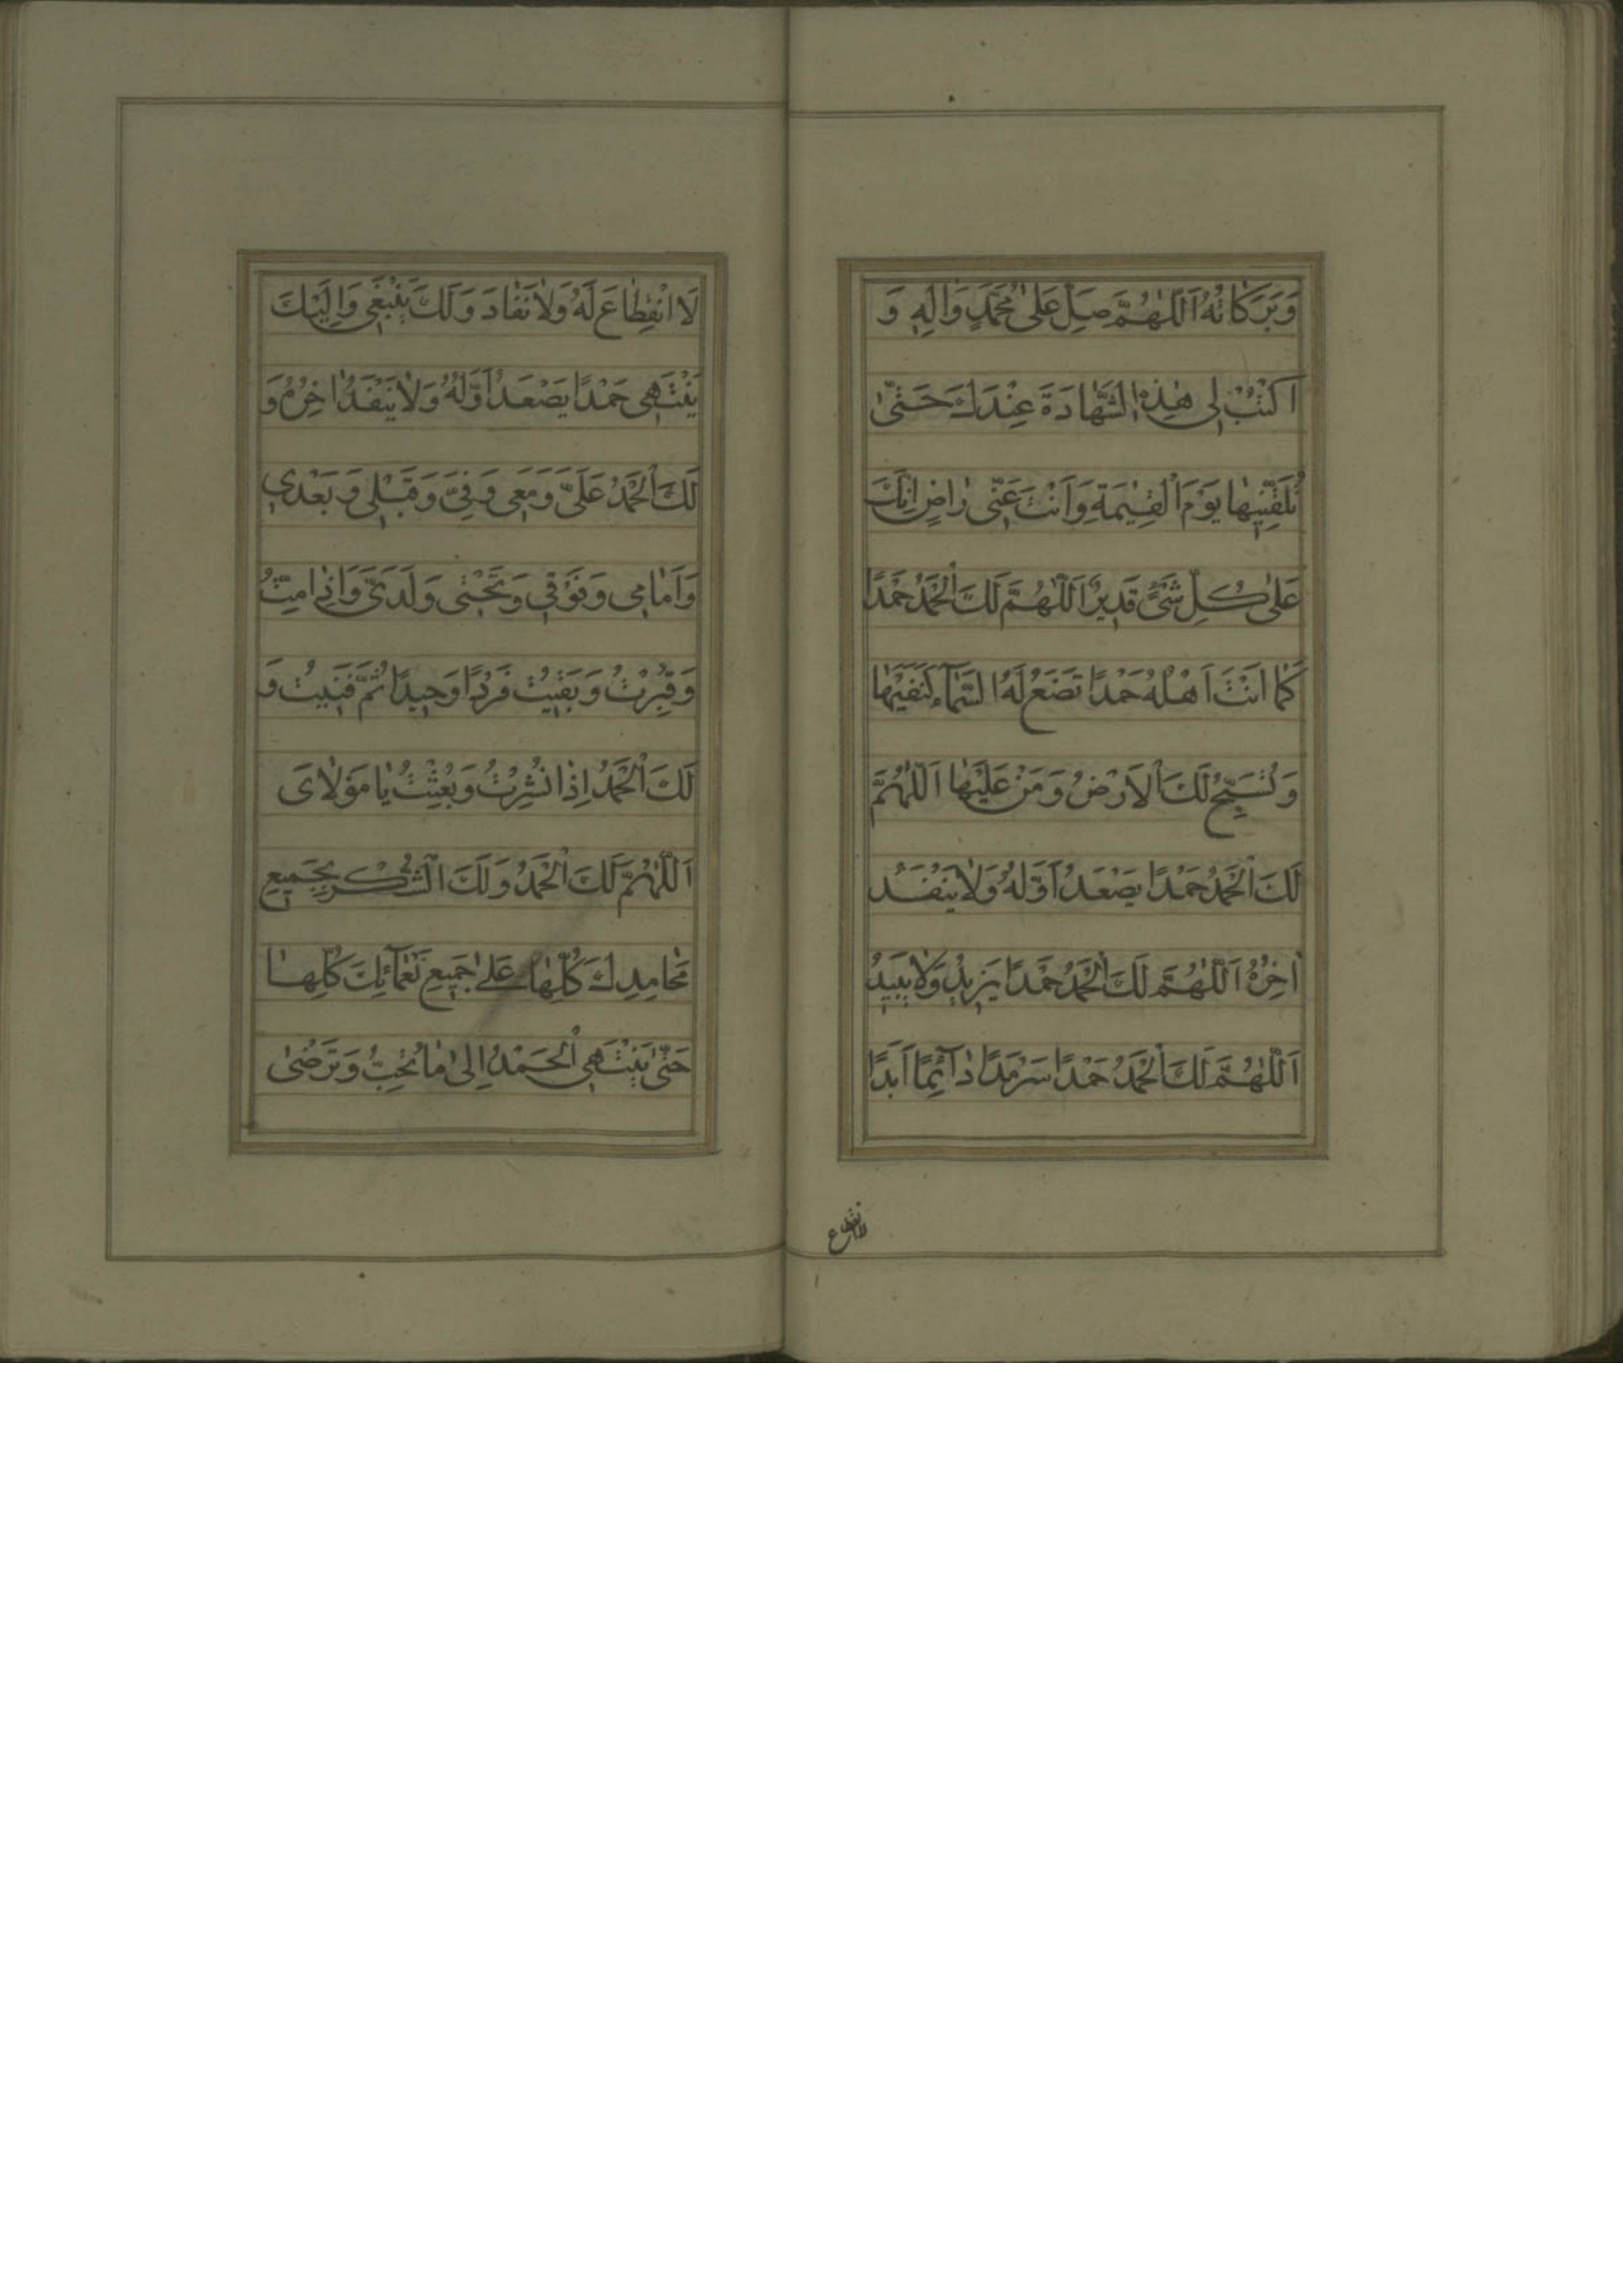 وَبَرَكَاتُهُ اَللّٰهُمَّ صَلِّ عَلٰى مُحَمَّدٍ وَاٰلِهِ وَ
اكْتُبْ لِى هٰذِهِ الشَّهَادَةَ عِنْدَكَ حَتّٰى
تُلَقِّنِيهَا يَوْمَ الْقِيٰمَةِ وَاَنْتَ عَنِّى رَاضٍ اِنَّكَ
عَلٰى كُلِّ شَىْءٍ قَدِيرٌ اَللّٰهُمَّ لَكَ الْحَمْدُ حَمْدًا
كَمَا اَنْتَ اَهْلُهُ حَمْدًا تَضَعُ لَهُ السَّمَآءُ كَنَفَيْهَا
وَتُسَبِّحُ لَكَ الْاَرْضُ وَمَنْ عَلَيْهَا اَللّٰهُمَّ
لَكَ الْحَمْدُ حَمْدًا يَصْعَدُ اَوَّلُهُ وَلَا يَنْفَدُ
اٰخِرُهُ اَللّٰهُمَّ لَكَ الْحَمْدُ حَمْدًا يَزِيدُ وَلَا يَبِيدُ
اَللّٰهُمَّ لَكَ الْحَمْدُ حَمْدًا سَرْمَدًا دَآئِمًا اَبَدًا
لَا انْقِطَاعَ لَهُ وَلَا نَفَادَ وَلَكَ يَنْبَغِى وَاِلَيْكَ
يَنْتَهِى حَمْدًا يَصْعَدُ اَوَّلُهُ وَلَا يَنْفَدُ اٰخِرُهُ وَ
لَكَ الْحَمْدُ عَلَىَّ وَمَعِى وَفِىَّ وَقَبْلِى وَبَعْدِى
وَاَمَامِى وَفَوْقِى وَتَحْتِى وَلَدَىَّ وَاِذَا مِتُّ
وَقُبِرْتُ وَبَقِيتُ فَرْدًا وَحِيدًا ثُمَّ فَنِيتُ وَ
لَكَ الْحَمْدُ اِذَا نُشِرْتُ وَبُعِثْتُ يَا مَوْلَاىَ
اَللّٰهُمَّ لَكَ الْحَمْدُ وَلَكَ الشُّكْرُ بِجَمِيعِ
مَحَامِدِكَ كُلِّهَا عَلٰى جَمِيعِ نَعْمَآئِكَ كُلِّهَا
حَتّٰى يَنْتَهِىَ الْحَمْدُ اِلٰى مَا تُحِبُّ وَتَرْضٰى